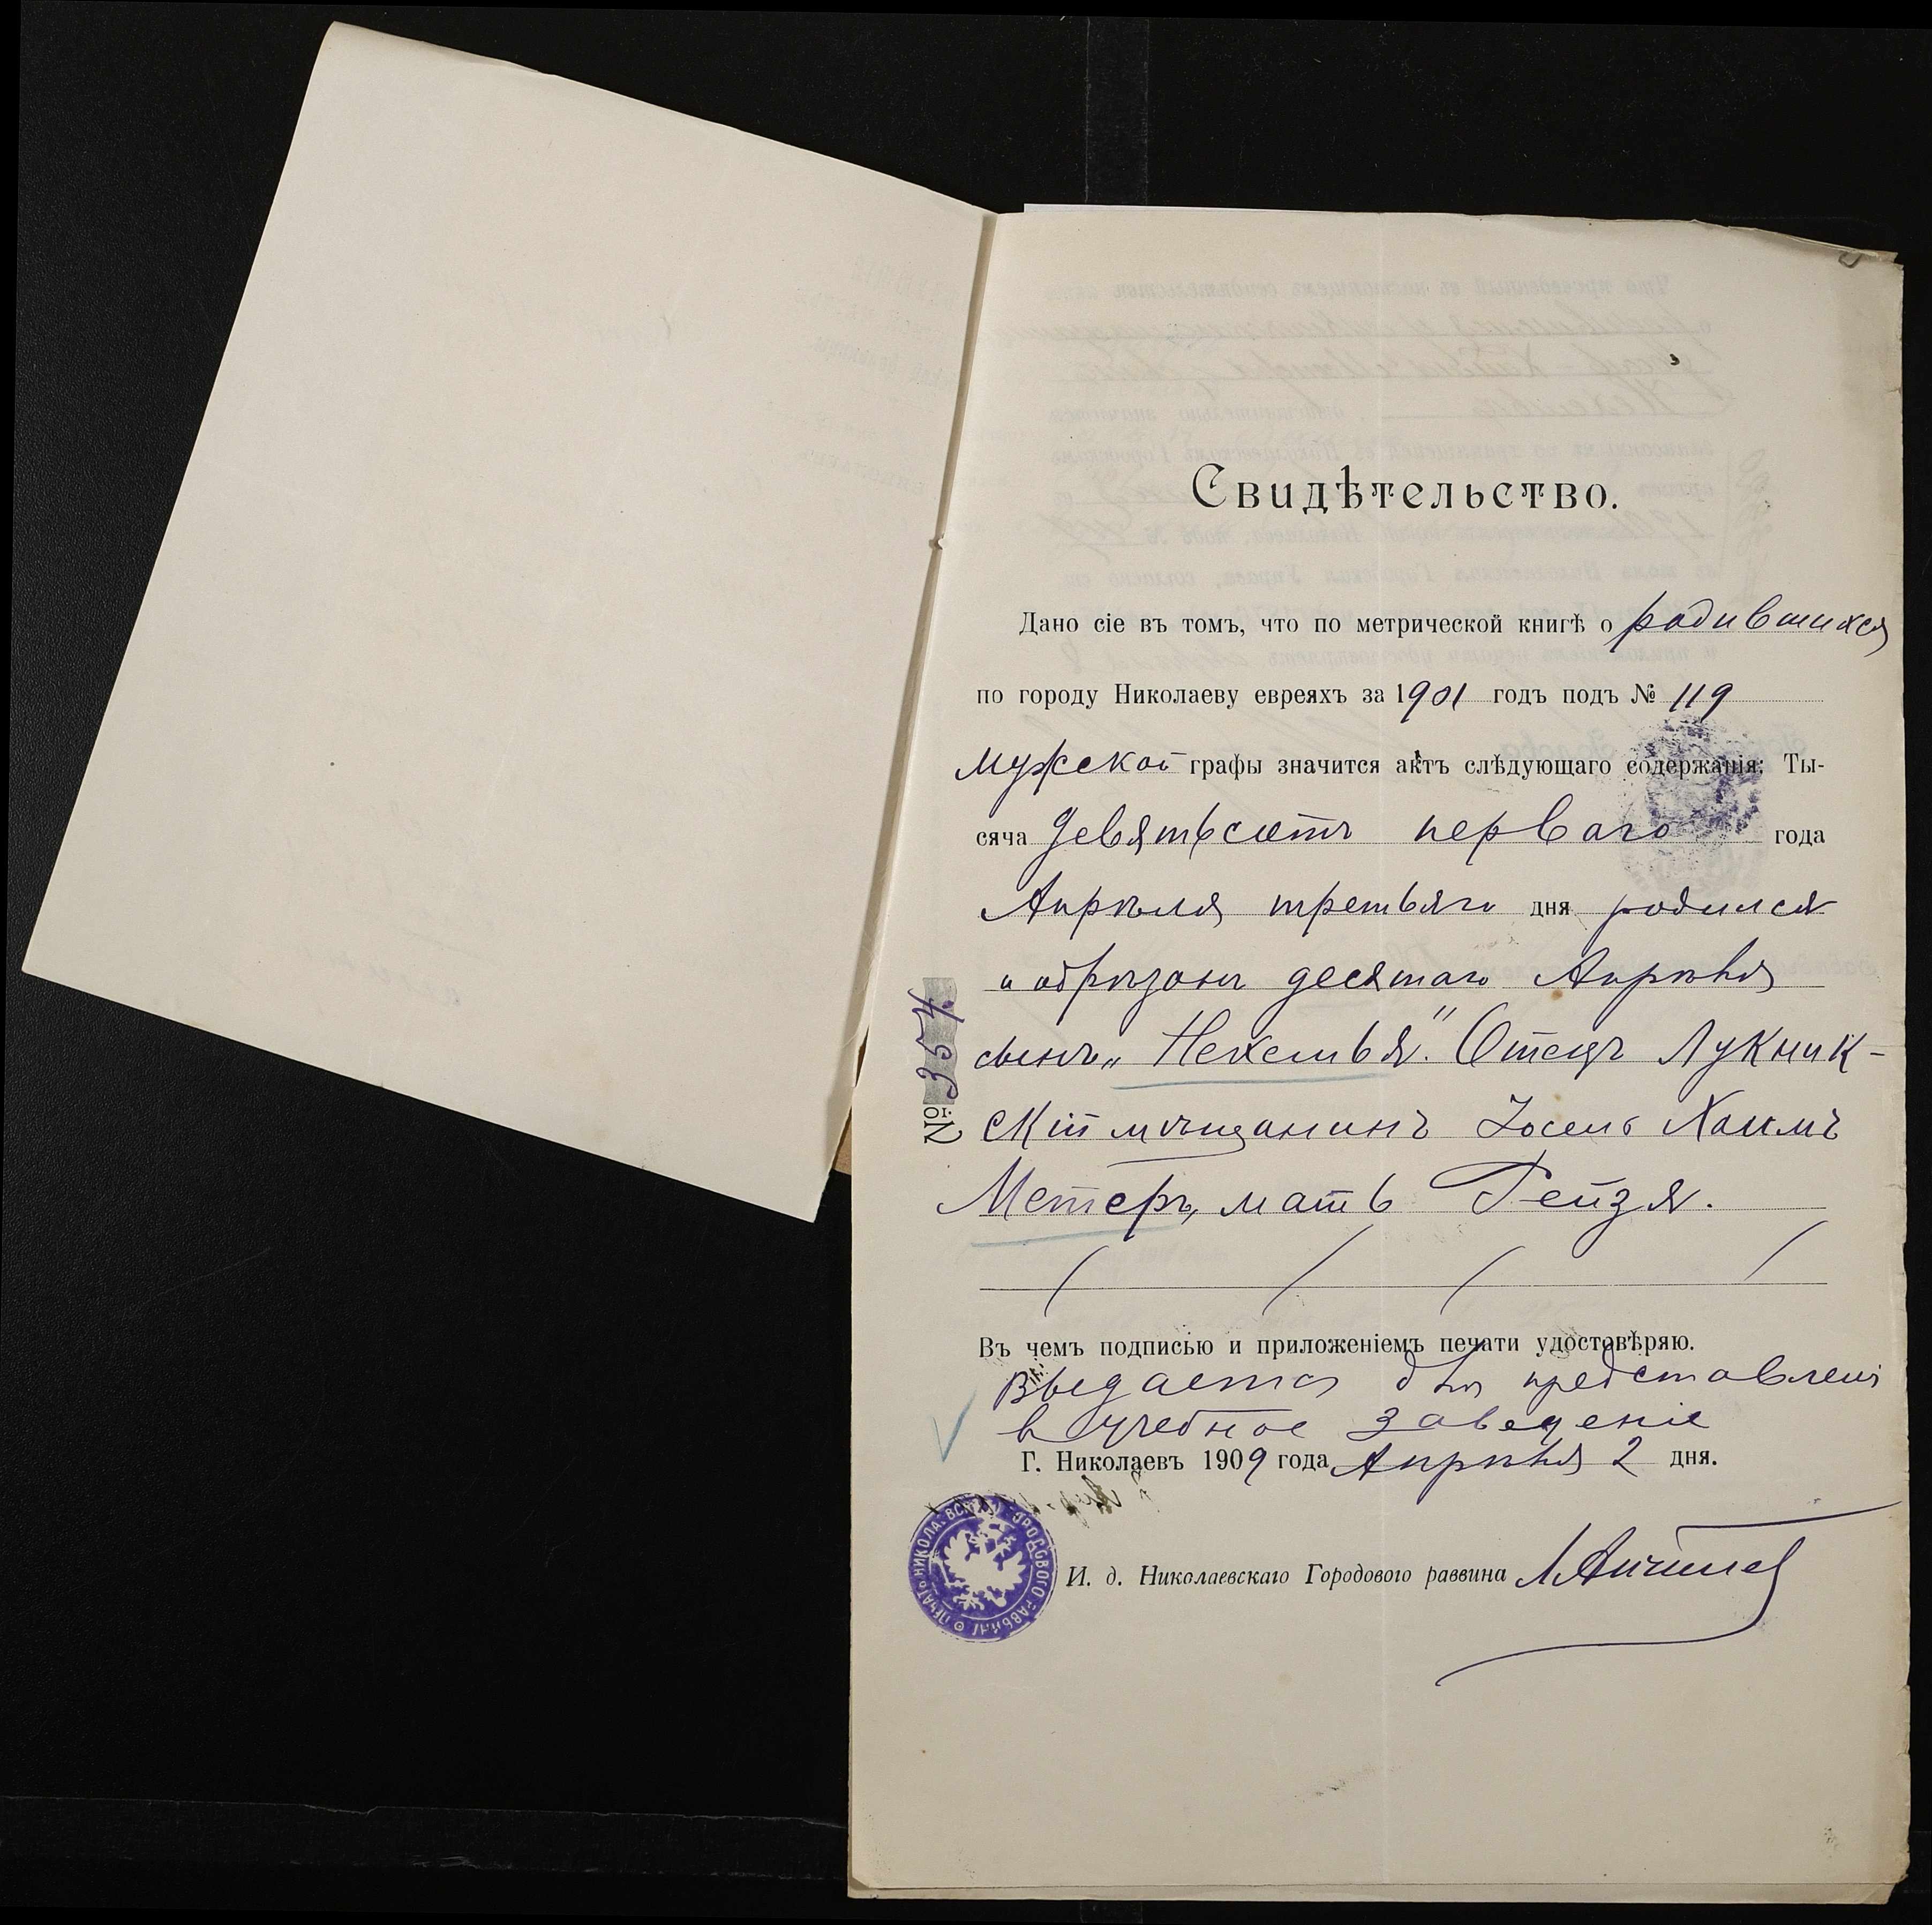 Свидѣтельство.
Дано сіе въ томъ, что по метрической книгѣ о родившихся
по городу Николаеву евреяхъ за 1901 годъ подъ № 119
мужской графы значится актъ слѣдующаго содержанія: Ты-
сяча девятьсотъ перваго года
Апрѣля третьяго дня родился
и обрѣзанъ десятаго Апрѣля
сынъ „Нехемья". Отецъ Лукник-
скій мѣщанинъ Іосель Хаимъ
Метеръ, мать Рейзя.
№ 354
Въ чемъ подписью и приложеніемъ печати удостовѣряю.
Выдается для представленія
в учебное заведеніе
Г. Николаевъ 1909 года Апрѣля 2 дня.
И. д. Николаевскаго Городового раввина
ПЕЧАТЬ НИКОЛАЕВСКАГО ГОРОДОВОГО РАВВИНА